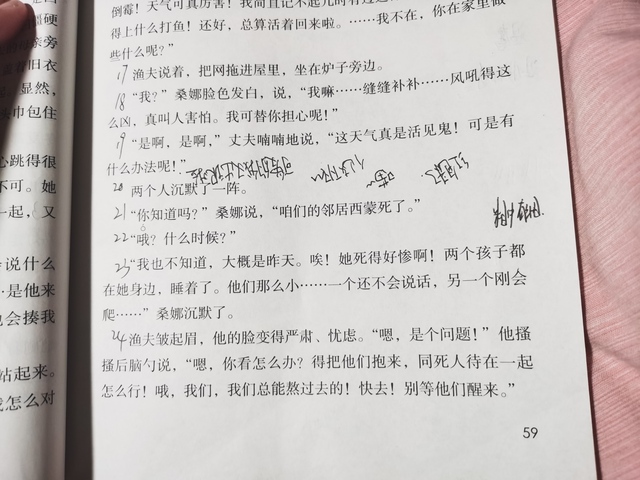 倒霉！天气可真厉害！我简直记不起几时有过这
得上什么打鱼！还好，总算活着回来啦。……我不在，你在家里做
些什么呢？”
17 渔夫说着，把网拖进屋里，坐在炉子旁边。
18 “我？”桑娜脸色发白，说，“我嘛……缝缝补补……风吼得这
么凶，真叫人害怕。我可替你担心呢！”
19 “是啊，是啊，”丈夫喃喃地说，“这天气真是活见鬼！可是有
什么办法呢！”
20 两个人沉默了一阵。
21 “你知道吗？”桑娜说，“咱们的邻居西蒙死了。”
22 “哦？什么时候？”
23 “我也不知道，大概是昨天。唉！她死得好惨啊！两个孩子都
在她身边，睡着了。他们那么小……一个还不会说话，另一个刚会
爬……”桑娜沉默了。
24 渔夫皱起眉，他的脸变得严肃、忧虑。“嗯，是个问题！”他搔
搔后脑勺说，“嗯，你看怎么办？得把他们抱来，同死人待在一起
怎么行！哦，我们，我们总能熬过去的！快去！别等他们醒来。”
59
硬
旁
旧衣
显然，
巾包住
心跳得很
不可。她
一起，又
说什么
是他来
也会揍我
站起来。
怎么对